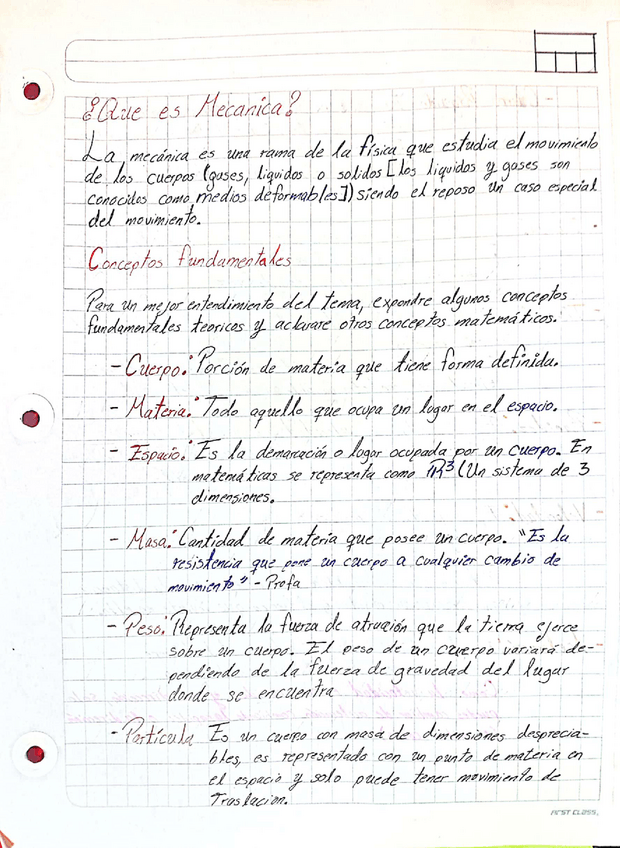 ¿Que es Mecanica?
La mecánica es una rama de la física que estudia el movimiento
de los cuerpos (gases, liquidos o solidos [los liquidos y gases son
conocidos como medios deformables]) siendo el reposo un caso especial
del movimiento.
Conceptos fundamentales
Para un mejor entendimiento del tema, expondre algunos conceptos
fundamentales teoricos y aclarare otros conceptos matemáticos.
- Cuerpo: Porción de materia que tiene forma definida.
- Materia: Todo aquello que ocupa un lugar en el espacio.
- Espacio: Es la demarcación o lugar ocupada por un cuerpo. En
matemáticas se representa como ℝ³ (Un sistema de 3
dimensiones.
- Masa: Cantidad de materia que posee un cuerpo. "Es la
resistencia que pone un cuerpo a cualquier cambio de
movimiento" - Profa
- Peso: Representa la fuerza de atracción que la tierra ejerce
sobre un cuerpo. El peso de un cuerpo variará de-
pendiendo de la fuerza de gravedad del lugar
donde se encuentra
- Partícula Es un cuerpo con masa de dimensiones desprecia-
bles, es representado con un punto de materia en
el espacio y solo puede tener movimiento de
Traslacion.
FIRST CLASS